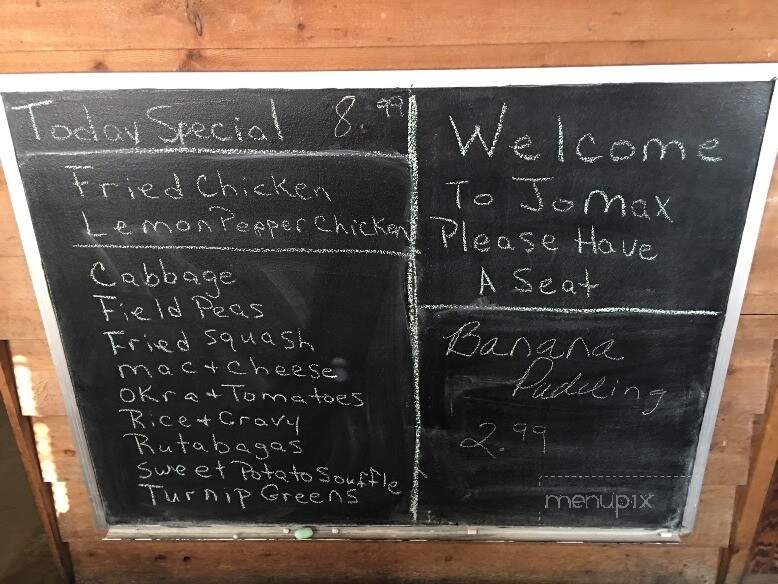 Today Special 8.99
Fried Chicken
Lemon Pepper Chicken
Cabbage
Field Peas
Fried Squash
mac + Cheese
Okra + Tomatoes
Rice + Gravy
Rutabagas
Sweet Potato Souffle
Turnip Greens
Welcome
To Jomax
Please Have
A Seat
Banana
Pudding
2.99
menupix